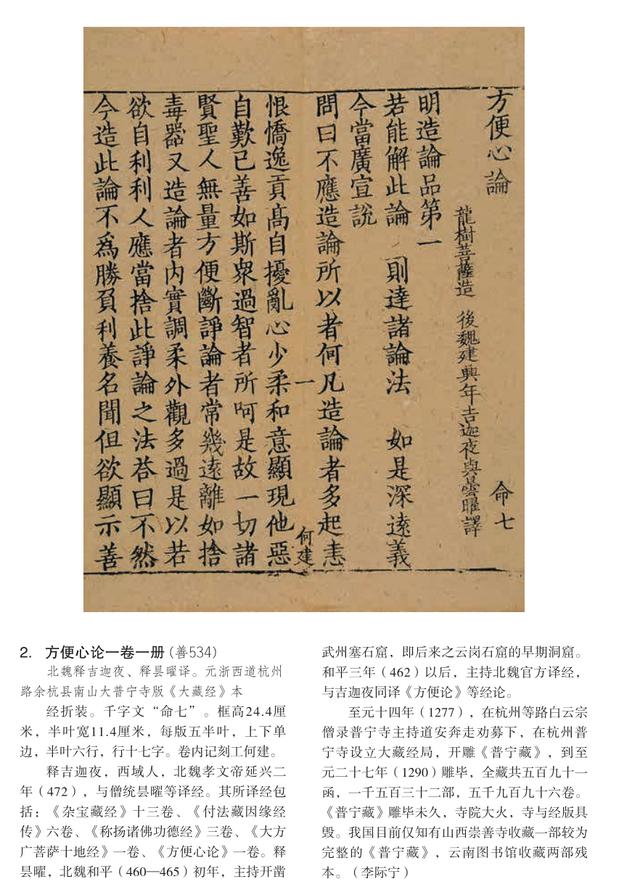 方便心論 命七
龍樹菩薩造 後魏建興年吉迦夜與曇曜譯
明造論品第一
若能解此論 則達諸論法 如是深遠義
今當廣宣說
問曰不應造論所以者何凡造論者多起恚
一 何建
恨憍逸貢高自擾亂心少柔和意顯現他惡
自歎己善如斯衆過智者所呵是故一切諸
賢聖人無量方便斷諍論者常幾遠離如捨
毒器又造論者內實調柔外觀多過是以若
欲自利利人應當捨此諍論之法荅曰不然
今造此論不為勝負利養名聞但欲顯示善
2. 方便心论一卷一册（善534）
北魏释吉迦夜、释昙曜译。元浙西道杭州
路余杭县南山大普宁寺版《大藏经》本
经折装。千字文“命七”。框高24.4厘
米，半叶宽11.4厘米，每版五半叶，上下单
边，半叶六行，行十七字。卷内记刻工何建。
释吉迦夜，西域人，北魏孝文帝延兴二
年（472），与僧统昙曜等译经。其所译经包
括：《杂宝藏经》十三卷、《付法藏因缘经
传》六卷、《称扬诸佛功德经》三卷、《大方
广菩萨十地经》一卷、《方便心论》一卷。释
昙曜，北魏和平（460—465）初年，主持开凿
武州塞石窟，即后来之云岗石窟的早期洞窟。
和平三年（462）以后，主持北魏官方译经，
与吉迦夜同译《方便论》等经论。
至元十四年（1277），在杭州等路白云宗
僧录普宁寺主持道安奔走劝募下，在杭州普
宁寺设立大藏经局，开雕《普宁藏》，到至
元二十七年（1290）雕毕，全藏共五百九十一
函，一千五百三十二部，五千九百九十六卷。
《普宁藏》雕毕未久，寺院大火，寺与经版具
毁。我国目前仅知有山西崇善寺收藏一部较为
完整的《普宁藏》，云南图书馆收藏两部残
本。（李际宁）